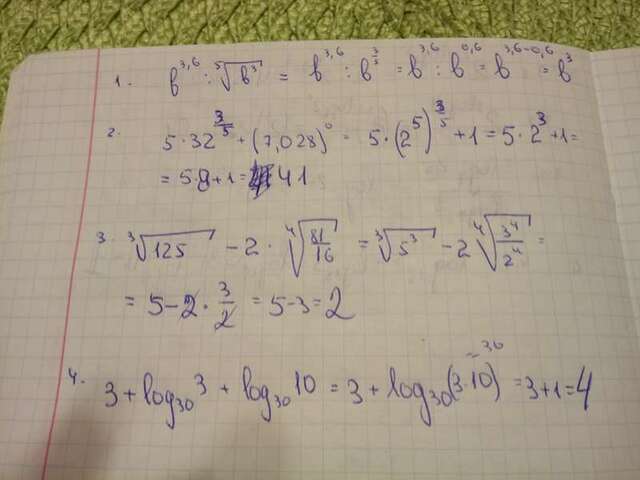 1. b^3,6 : ⁵√b³ = b^3,6 : b^3/5 = b^3,6 : b^0,6 = b^3,6-0,6 = b³
2. 5·32^3/5 + (7,028)⁰ = 5·(2⁵)^3/5 + 1 = 5·2³ + 1 =
= 5·8+1 = 41
3. ³√125 - 2·⁴√81/16 = ³√5³ - 2 ⁴√3⁴/2⁴ =
= 5-2·3/2 = 5-3 = 2
4. 3 + log₃₀3 + log₃₀10 = 3 + log₃₀(3·10) = 3+1 = 4